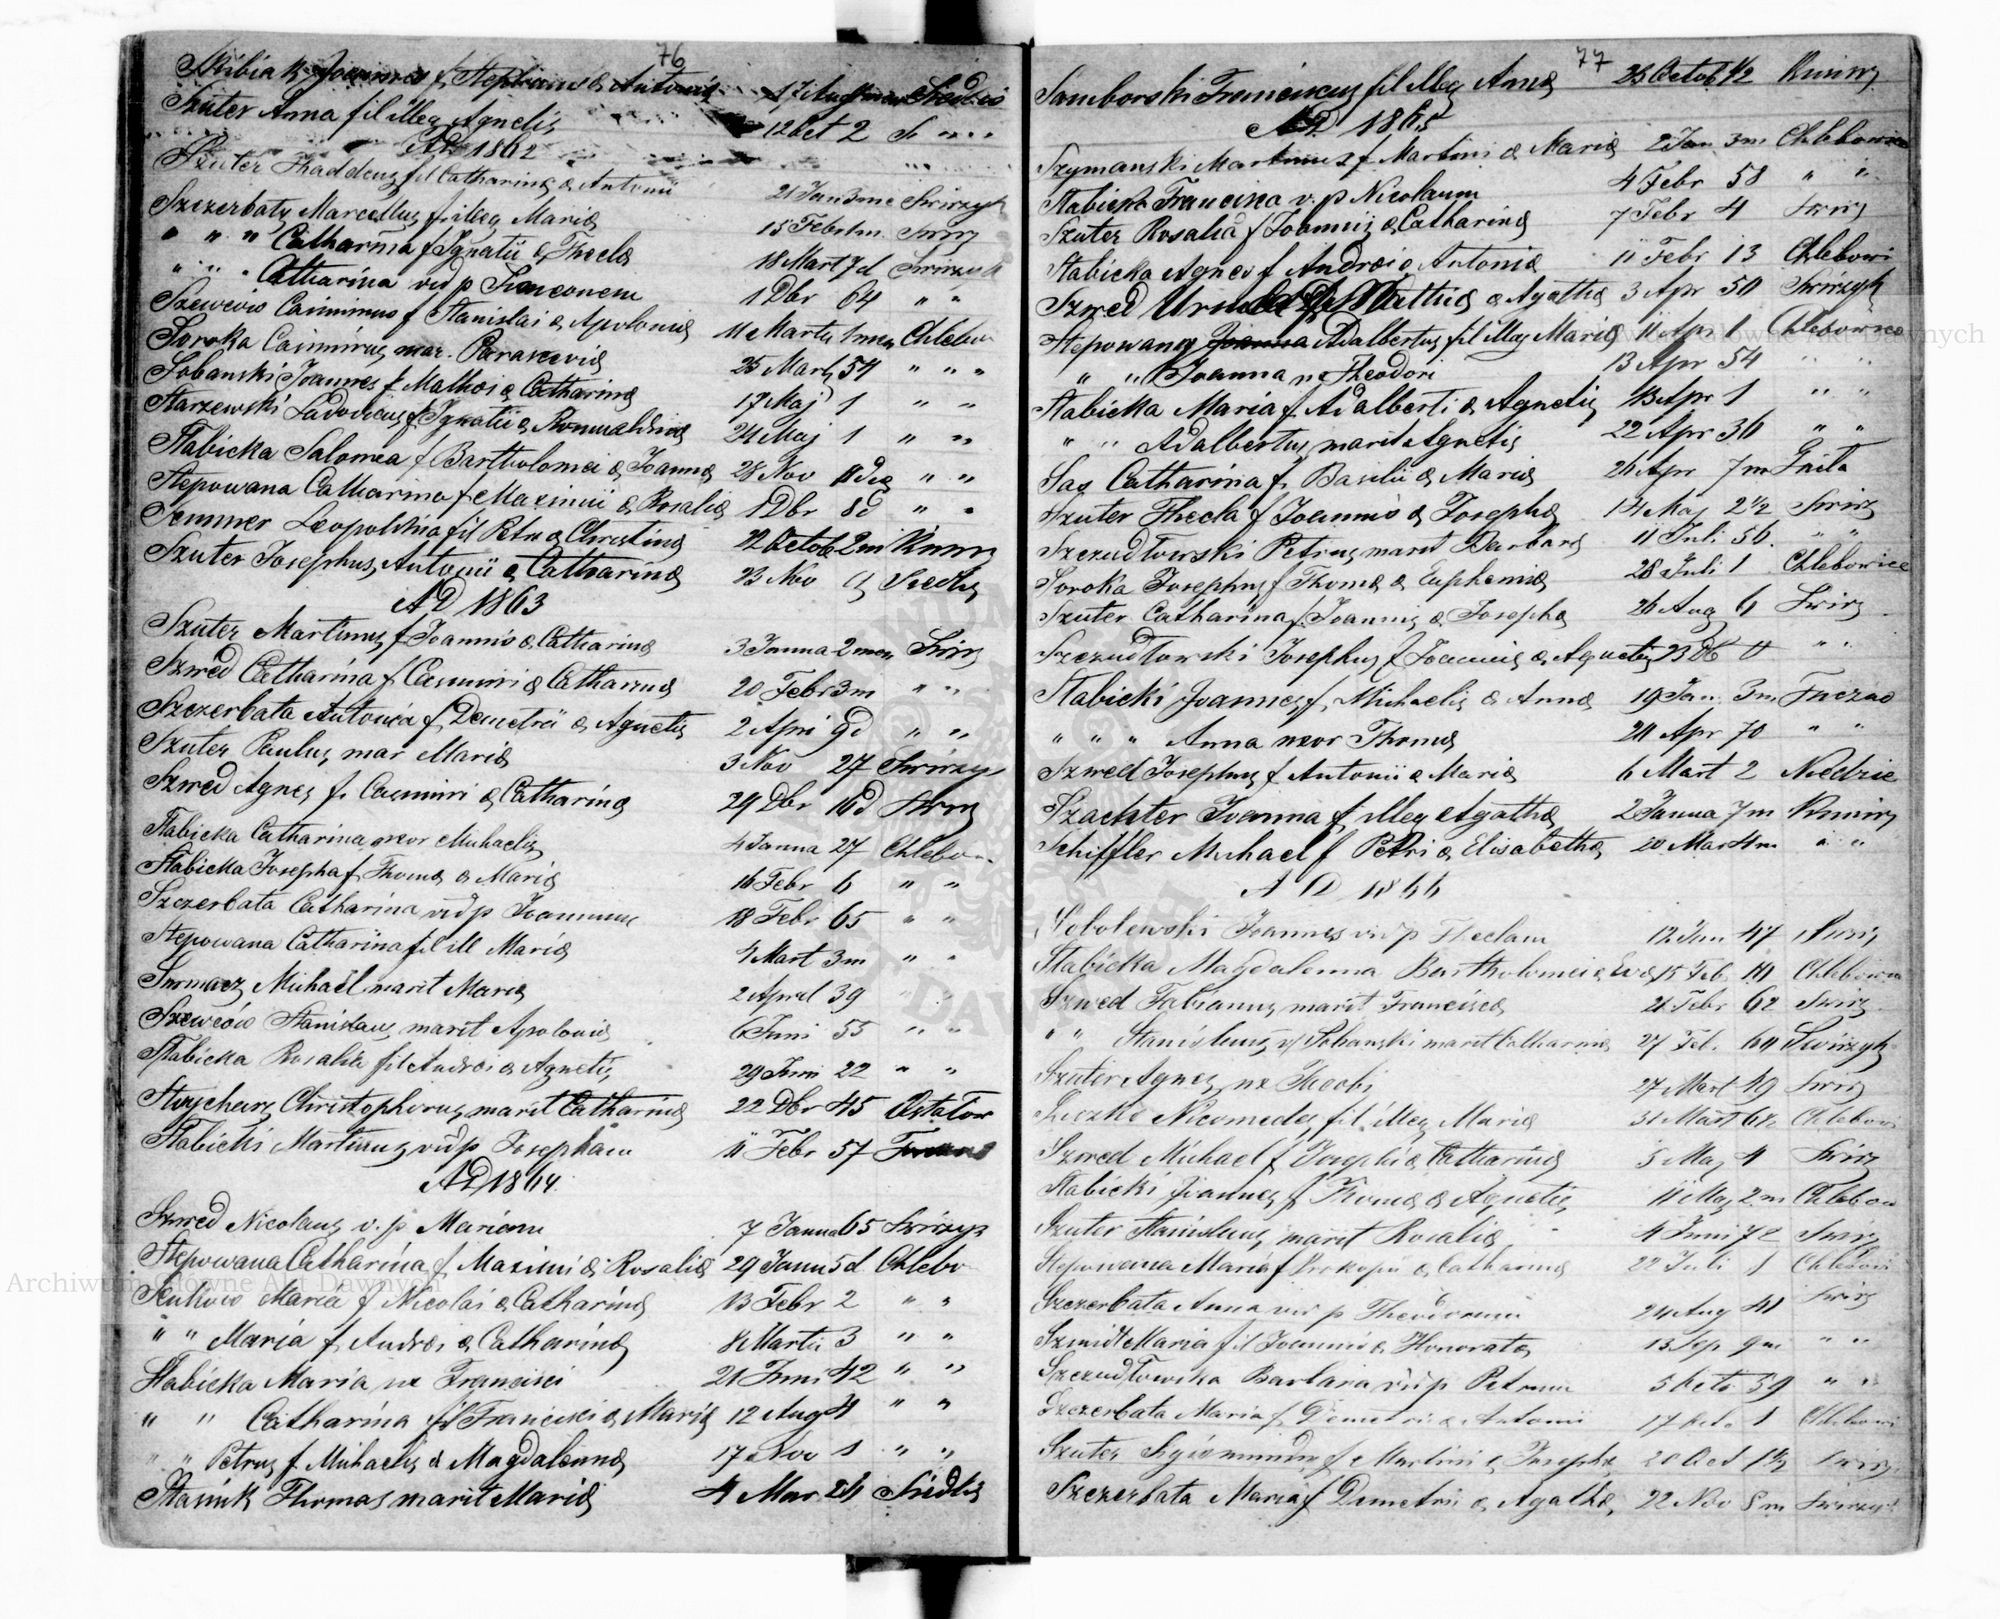 76
Skibiak Joannes f. Stephani & Antonia 17 Aug
Szuter Anna fil illeg Agnetis 12 Oct 2
AD 1862
Szuter Thaddeus fil Catharina & Antonii 21 Jan 3 me Swirzyk
Szczerbaty Marcellus f. illeg Maria 15 Febr Swirz
" " " Catharina f Ignatii & Thecla 18 Mart 7 d Swirzyk
" " " Catharina vid p Simeonem 1 Dbr 64 " "
Szewców Casimirus f Stanislai & Apolonia 11 Martii Chlebow
Soroka Casimirus mar. Parascevia 25 Marti 54 " " "
Sobanski Joannes f Mathei & Catharina 17 Maj 1 " "
Starzewski Ladovicus f Ignatii & Romualdina 24 Maj 1 " "
Stabicka Salomea f Bartholomei & Joanna 28 Nov " "
Stepowana Catharina f Maximii & Rosalia 1 Dbr 8 d " "
Semmer Leopoldina fil Petri & Christina 22 Octob 2 m Kimirz
Szuter Josephus, Antonii & Catharina 23 Nov Siedlis
AD 1863
Szuter Martinus f Joannis & Catharina 3 Janua 2 men Swirz
Szwed Catharina f Casimiri & Catharina 20 Febr 3 m " "
Szczerbata Antonia f Demetrii & Agnetis 2 Apri 9 d " "
Szuter Paulus mar Maria 3 Nov 27 Swirzyk
Szwed Agnes f. Casimiri & Catharina 29 Dbr 16 d Swirz
Stabicka Catharina uxor Michaelis 4 Janua 27 Chlebow
Stabicka Josepha f Thoma & Maria 16 Febr 6 " "
Szczerbata Catharina vid p Joannem 18 Febr 65 " "
Stepowana Catharina fil ill Maria 4 Mart 3 m " "
Michael marit Maria 2 April 39 " "
Szewców Stanislaus marit Apolonia 6 Juni 55 " "
Stabicka Rosalia fil Andrei & Agnetis 29 Juni 22 " "
Christophorus marit Catharina 22 Dbr 45 Ostalow
Stabicki Martinus vid p Josepham 11 Febr 57
AD 1864
Szwed Nicolaus v. p Mariam 7 Janua 65 Swirzyk
Stepowana Catharina f Maximi & Rosalia 29 Janu 5 d Chlebo
Senkow Maria f Nicolai & Catharina 13 Febr 2 " "
" " Maria f. Andrei & Catharina 8 Martii 3 " "
Stabicka Maria ux Francisci 21 Juni 42 " "
" " Catharina fil Francisci & Maria 12 Aug 4 " "
" " Petrus f Michaelis & Magdalenna 17 Nov 1 " "
Stasiuk Thomas marit Maria 4 Mar 26 Siedlis
77
Samborski Franciscus fil illeg Anna 23 Octob 1/2 Kimirz
AD 1865
Szymanski Martinus f Martini & Maria 2 Jan 3 m Chlebowice
Stabicka Francisca v. p Nicolaum 4 Febr 58 " "
Szuter Rosalia f Joannis & Catharina 7 Febr 4 Swirz
Stabicka Agnes f Andrei & Antonia 11 Febr 13 Chlebowi
Szwed Ursula f Mathia & Agatha 3 Apr 50 Swirzyk
Stepowany Joanna Adalbertus fil illeg Maria 11 Apr 1 Chlebowice
" " Joanna ux Theodori 13 Apr 54 " "
Stabicka Maria f Adalberti & Agnetis 13 Apr 1 " "
" " Adalbertus marit Agnetis 22 Apr 36 " "
Sas Catharina f. Basilii & Maria 26 Apr 7 m Gnila
Szuter Thecla f Joannis & Josepha 14 Maj 2 1/2 Swirz
Szczudłowski Petrus marit Barbara 11 Juli 56 " "
Soroka Josephus f Thoma & Euphemia 28 Juli 1 Chlebowice
Szuter Catharina f. Joannis & Josepha 26 Aug 6 Swirz
Szczudłowski Josephus f Joannis & Agnetis 23 " "
Stabicki Joannes f. Michaelis & Anna 19 Jan 3 m
" " " Anna uxor Thoma 20 Apr 70 " "
Szwed Josephus f Antonii & Maria 6 Mart 2 Niedzie
Szachter Joanna f. illeg Agatha 2 Janua 7 m Kimirz
Schiffler Michael f Petri & Elisabetha 20 Mar " "
AD 1866
Sobolewski Joannes vid p Theclam 12 Jan 47 Swirz
Stabicka Magdalenna Bartholomei & Eva 15 Feb Chlebowi
Szwed Fabianus marit Francisca 21 Febr 62 Swirz
" " Stanislaus v/ Sobanski marit Catharina 27 Feb. 60 Swirzyk
Szuter Agnes ux Jacobi 27 Mart 49 Swirz
Nicomedes fil illeg Maria 31 Mart Chlebow
Szwed Michael f Josephi & Catharina 5 Maj 4 Swirz
Stabicki Joannes f Thoma & Agnetis 11 Maj 2 m Chlebow
Szuter Stanislaus marit Rosalia 4 Juni 72 Swirz
Stepowana Maria f Prokopii & Catharina 22 Juli 1 Chlebowi
Szczerbata Anna vid p Theodorum 24 Aug 41 Swirz
Szmidt Maria fil Joannis & Honorata 13 Sep 9 m " "
Szczudłowska Barbara vid p Petrum 5 Octo 59 " "
Szczerbata Maria f Demetri & Antonii 17 Octo 1 Chlebowi
Szuter Sigismundus f Martini & Josepha 20 Oct 1 1/2 Swirz
Szczerbata Maria f Demetrii & Agatha 22 Nov 8 m Swirzyk
Archiwum Główne Akt Dawnych
Archiwum Główne Akt Dawnych